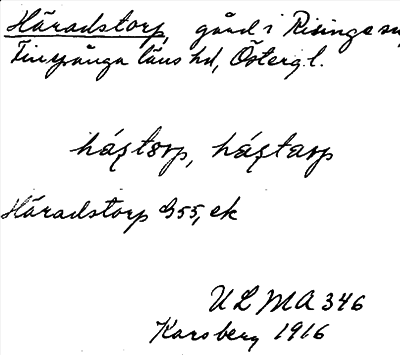 Häradstorp, gård i Risinge sn,
Finspånga läns hd, Östergl.
hástorp, hástarp
Häradstorp G55, ek
ULMA 346
Karsberg 1916